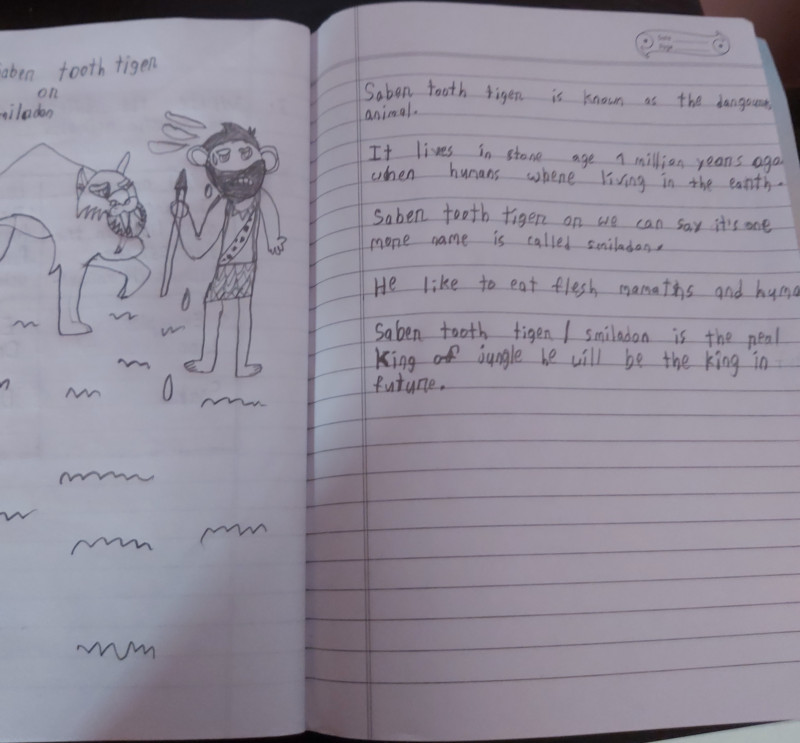 Saber tooth tiger
or
smiladon
Date
Page
Saber tooth tiger is known as the dangourus
animal.
It lives in stone age 1 million years ago
when humans where living in the earth.
Saber tooth tiger or we can say it's one
more name is called smiladon.
He like to eat flesh mamaths and huma
Saber tooth tiger / smiladon is the real
King of jungle he will be the king in
future.